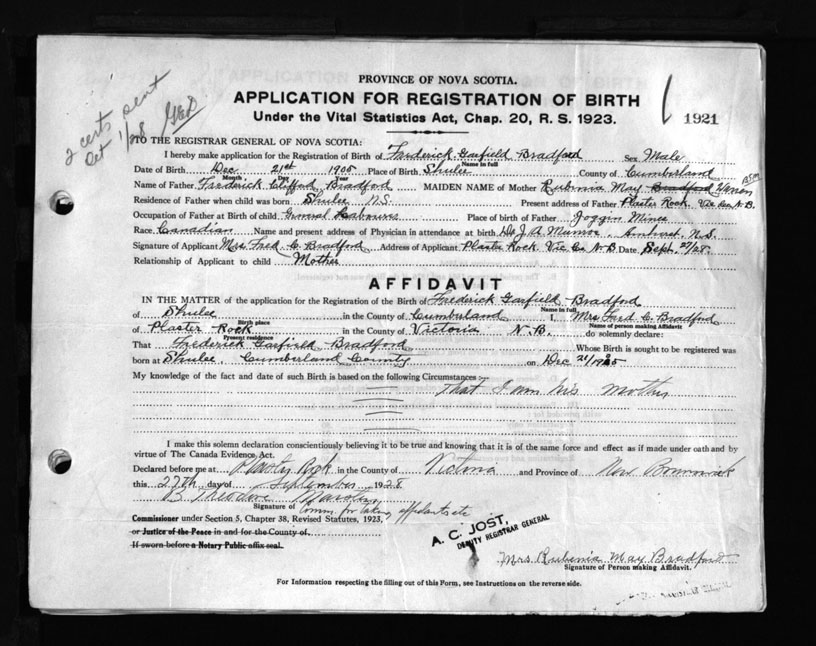 PROVINCE OF NOVA SCOTIA.
APPLICATION FOR REGISTRATION OF BIRTH
Under the Vital Statistics Act, Chap. 20, R. S. 1923.
1921
2 certs sent
Oct 1/28
TO THE REGISTRAR GENERAL OF NOVA SCOTIA:
I hereby make application for the Registration of Birth of Frederick Garfield Bradford Sex Male
Name in full
Date of Birth Dec. 21st 1905 Place of Birth Shulee County of Cumberland
Month Day Year
Name of Father Frederick Clifford Bradford MAIDEN NAME of Mother Rubenia May Bradford
Residence of Father when child was born Shulee N.S. Present address of Father Plaster Rock, Vic Co. N.B.
Occupation of Father at Birth of child General Labourer Place of birth of Father Joggin Mines
Race Canadian Name and present address of Physician in attendance at birth Dr J. A. Munroe, Amherst, N.S.
Signature of Applicant Mrs. Fred C. Bradford Address of Applicant Plaster Rock Vic Co. N.B. Date Sept. 27/28.
Relationship of Applicant to child Mother
AFFIDAVIT
IN THE MATTER of the application for the Registration of the Birth of Frederick Garfield Bradford
Name in full
of Shulee in the County of Cumberland I, Mrs Fred C. Bradford
Birth place Name of person making Affidavit
of Plaster Rock in the County of Victoria N.B. do solemnly declare:
Present residence
That Frederick Garfield Bradford Whose Birth is sought to be registered was
born at Shulee Cumberland County on Dec 21/1905
My knowledge of the fact and date of such Birth is based on the following Circumstances
That I am his Mother
I make this solemn declaration conscientiously believing it to be true and knowing that it is of the same force and effect as if made under oath and by
virtue of The Canada Evidence Act.
Declared before me at Plaster Rock in the County of Victoria and Province of New Brunswick
this 27th day of September 1928
B. Theodore
Signature of
Comm. for taking affidavits
Commissioner under Section 5, Chapter 38, Revised Statutes, 1923,
or Justice of the Peace in and for the County of
If sworn before a Notary Public affix seal.
A. C. JOST,
DEPUTY REGISTRAR GENERAL
Mrs Rubenia May Bradford
Signature of Person making Affidavit.
For Information respecting the filling out of this Form, see Instructions on the reverse side.